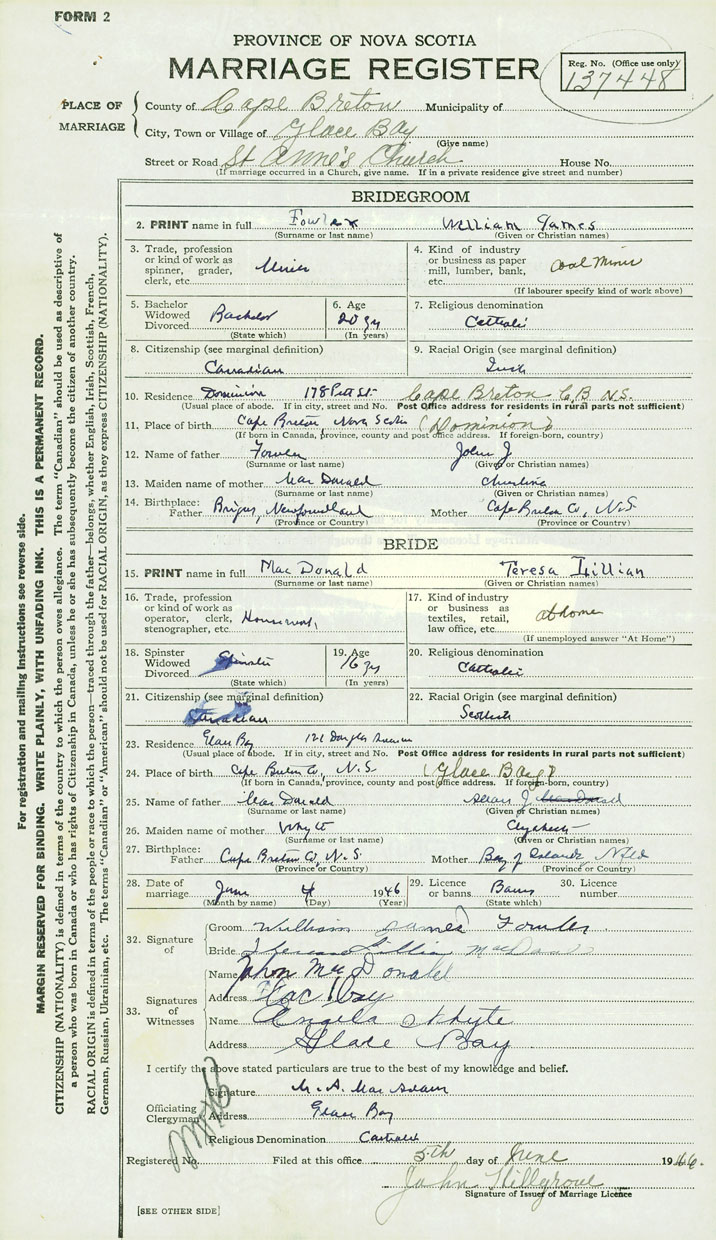 FORM 2
PROVINCE OF NOVA SCOTIA
MARRIAGE REGISTER
Reg. No. (Office use only)
137448
PLACE OF MARRIAGE
County of Cape Breton Municipality of
City, Town or Village of Glace Bay
(Give name)
Street or Road St Anne's Church House No.
(If marriage occurred in a Church, give name. If in a private residence give street and number)
BRIDEGROOM
2. PRINT name in full Fowler William James
(Surname or last name) (Given or Christian names)
3. Trade, profession or kind of work as spinner, grader, clerk, etc. Miner
4. Kind of industry or business as paper mill, lumber, bank, etc. Coal Mine
(If labourer specify kind of work above)
5. Bachelor Widowed Divorced Bachelor
(State which)
6. Age 20 yrs
(In years)
7. Religious denomination
Catholic
8. Citizenship (see marginal definition)
Canadian
9. Racial Origin (see marginal definition)
Irish
10. Residence Dominion 178 Pitt St. Cape Breton C.B N.S.
(Usual place of abode. If in city, street and No. Post Office address for residents in rural parts not sufficient)
11. Place of birth Cape Breton, Nova Scotia (Dominion)
(If born in Canada, province, county and post office address. If foreign-born, country)
12. Name of father Fowler John J.
(Surname or last name) (Given or Christian names)
13. Maiden name of mother Mac Donald
(Surname or last name) (Given or Christian names)
14. Birthplace: Father Brigus, Newfoundland Mother Cape Breton Co, N.S.
(Province or Country) (Province or Country)
BRIDE
15. PRINT name in full Mac Donald Teresa Lillian
(Surname or last name) (Given or Christian names)
16. Trade, profession or kind of work as operator, clerk, stenographer, etc. Housework
17. Kind of industry or business as textiles, retail, law office, etc. at home
(If unemployed answer "At Home")
18. Spinster Widowed Divorced Spinster
(State which)
19. Age 16 yrs
(In years)
20. Religious denomination
Catholic
21. Citizenship (see marginal definition)
Canadian
22. Racial Origin (see marginal definition)
Scottish
23. Residence Glace Bay 121 Douglas Avenue
(Usual place of abode. If in city, street and No. Post Office address for residents in rural parts not sufficient)
24. Place of birth Cape Breton Co, N.S (Glace Bay)
(If born in Canada, province, county and post office address. If foreign-born, country)
25. Name of father Mac Donald J.
(Surname or last name) (Given or Christian names)
26. Maiden name of mother Whyte
(Surname or last name) (Given or Christian names)
27. Birthplace: Father Cape Breton Co, N.S. Mother Bay of Islands, Nfld
(Province or Country) (Province or Country)
28. Date of marriage June 4 1946
(Month by name) (Day) (Year)
29. Licence or banns Banns
(State which)
30. Licence number
32. Signature of
Groom William James Fowler
Bride Theresa Lillian MacDonald
33. Signatures of Witnesses
Name John McDonald
Address Glac Bay
Name Angela Whyte
Address Glace Bay
I certify the above stated particulars are true to the best of my knowledge and belief.
Officiating Clergyman
Signature M. A. Mac Adam
Address Glace Bay
Religious Denomination Catholic
Registered No. Filed at this office 5th day of June 1946.
John Hillgrove
Signature of Issuer of Marriage Licence
[SEE OTHER SIDE]
For registration and mailing instructions see reverse side.
MARGIN RESERVED FOR BINDING. WRITE PLAINLY, WITH UNFADING INK. THIS IS A PERMANENT RECORD.
CITIZENSHIP (NATIONALITY) is defined in terms of the country to which the person owes allegiance. The term "Canadian" should be used as descriptive of
a person who was born in Canada or who has rights of Citizenship in Canada, unless he or she has subsequently become the citizen of another country.
RACIAL ORIGIN is defined in terms of the people or race to which the person—traced through the father—belongs, whether English, Irish, Scottish, French,
German, Russian, Ukrainian, etc. The terms "Canadian" or "American" should not be used for RACIAL ORIGIN, as they express CITIZENSHIP (NATIONALITY).